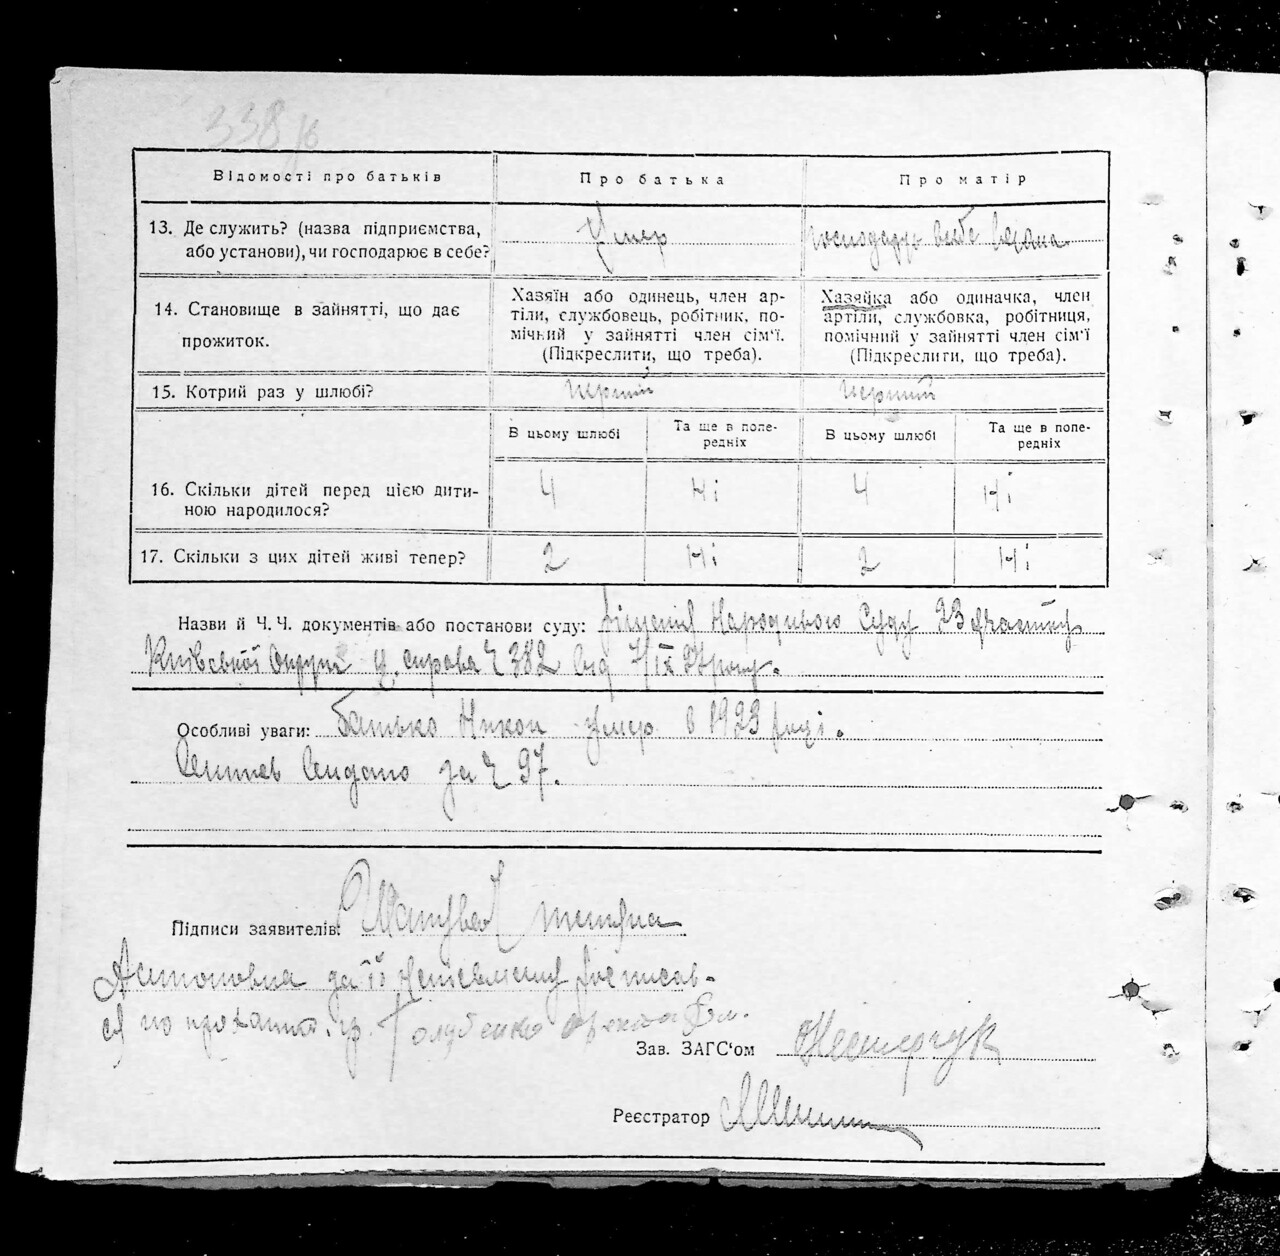 338
Відомості про батьків
Про батька
Про матір
13. Де служить? (назва підприємства,
або установи), чи господарює в себе?
Умер
господарює в себе
14. Становище в зайнятті, що дає
прожиток.
Хазяїн або одинець, член ар-
тіли, службовець, робітник, по-
мічний у зайнятті член сім'ї.
(Підкреслити, що треба).
Хазяйка або одиначка, член
артіли, службовка, робітниця,
помічний у зайнятті член сім'ї
(Підкреслити, що треба).
15. Котрий раз у шлюбі?
перший
перший
В цьому шлюбі
Та ще в попе-
редніх
В цьому шлюбі
Та ще в попе-
редніх
16. Скільки дітей перед цією дити-
ною народилося?
4
Ні
4
Ні
17. Скільки з цих дітей живі тепер?
2
Ні
2
Ні
Назви й Ч. Ч. документів або постанови суду: Рішення Народнього Суду 23 участку
Київської Округи Ц. справа Ч 382 від 7/IX
Особливі уваги: Батько Никон умер в 1923 році.
видано за Ч 97.
Підписи заявителів:
Антоновна да її неписьменну росписав-
ся по проханню гр. Голубенко
Зав. ЗАГС'ом Нестерчук
Реєстратор